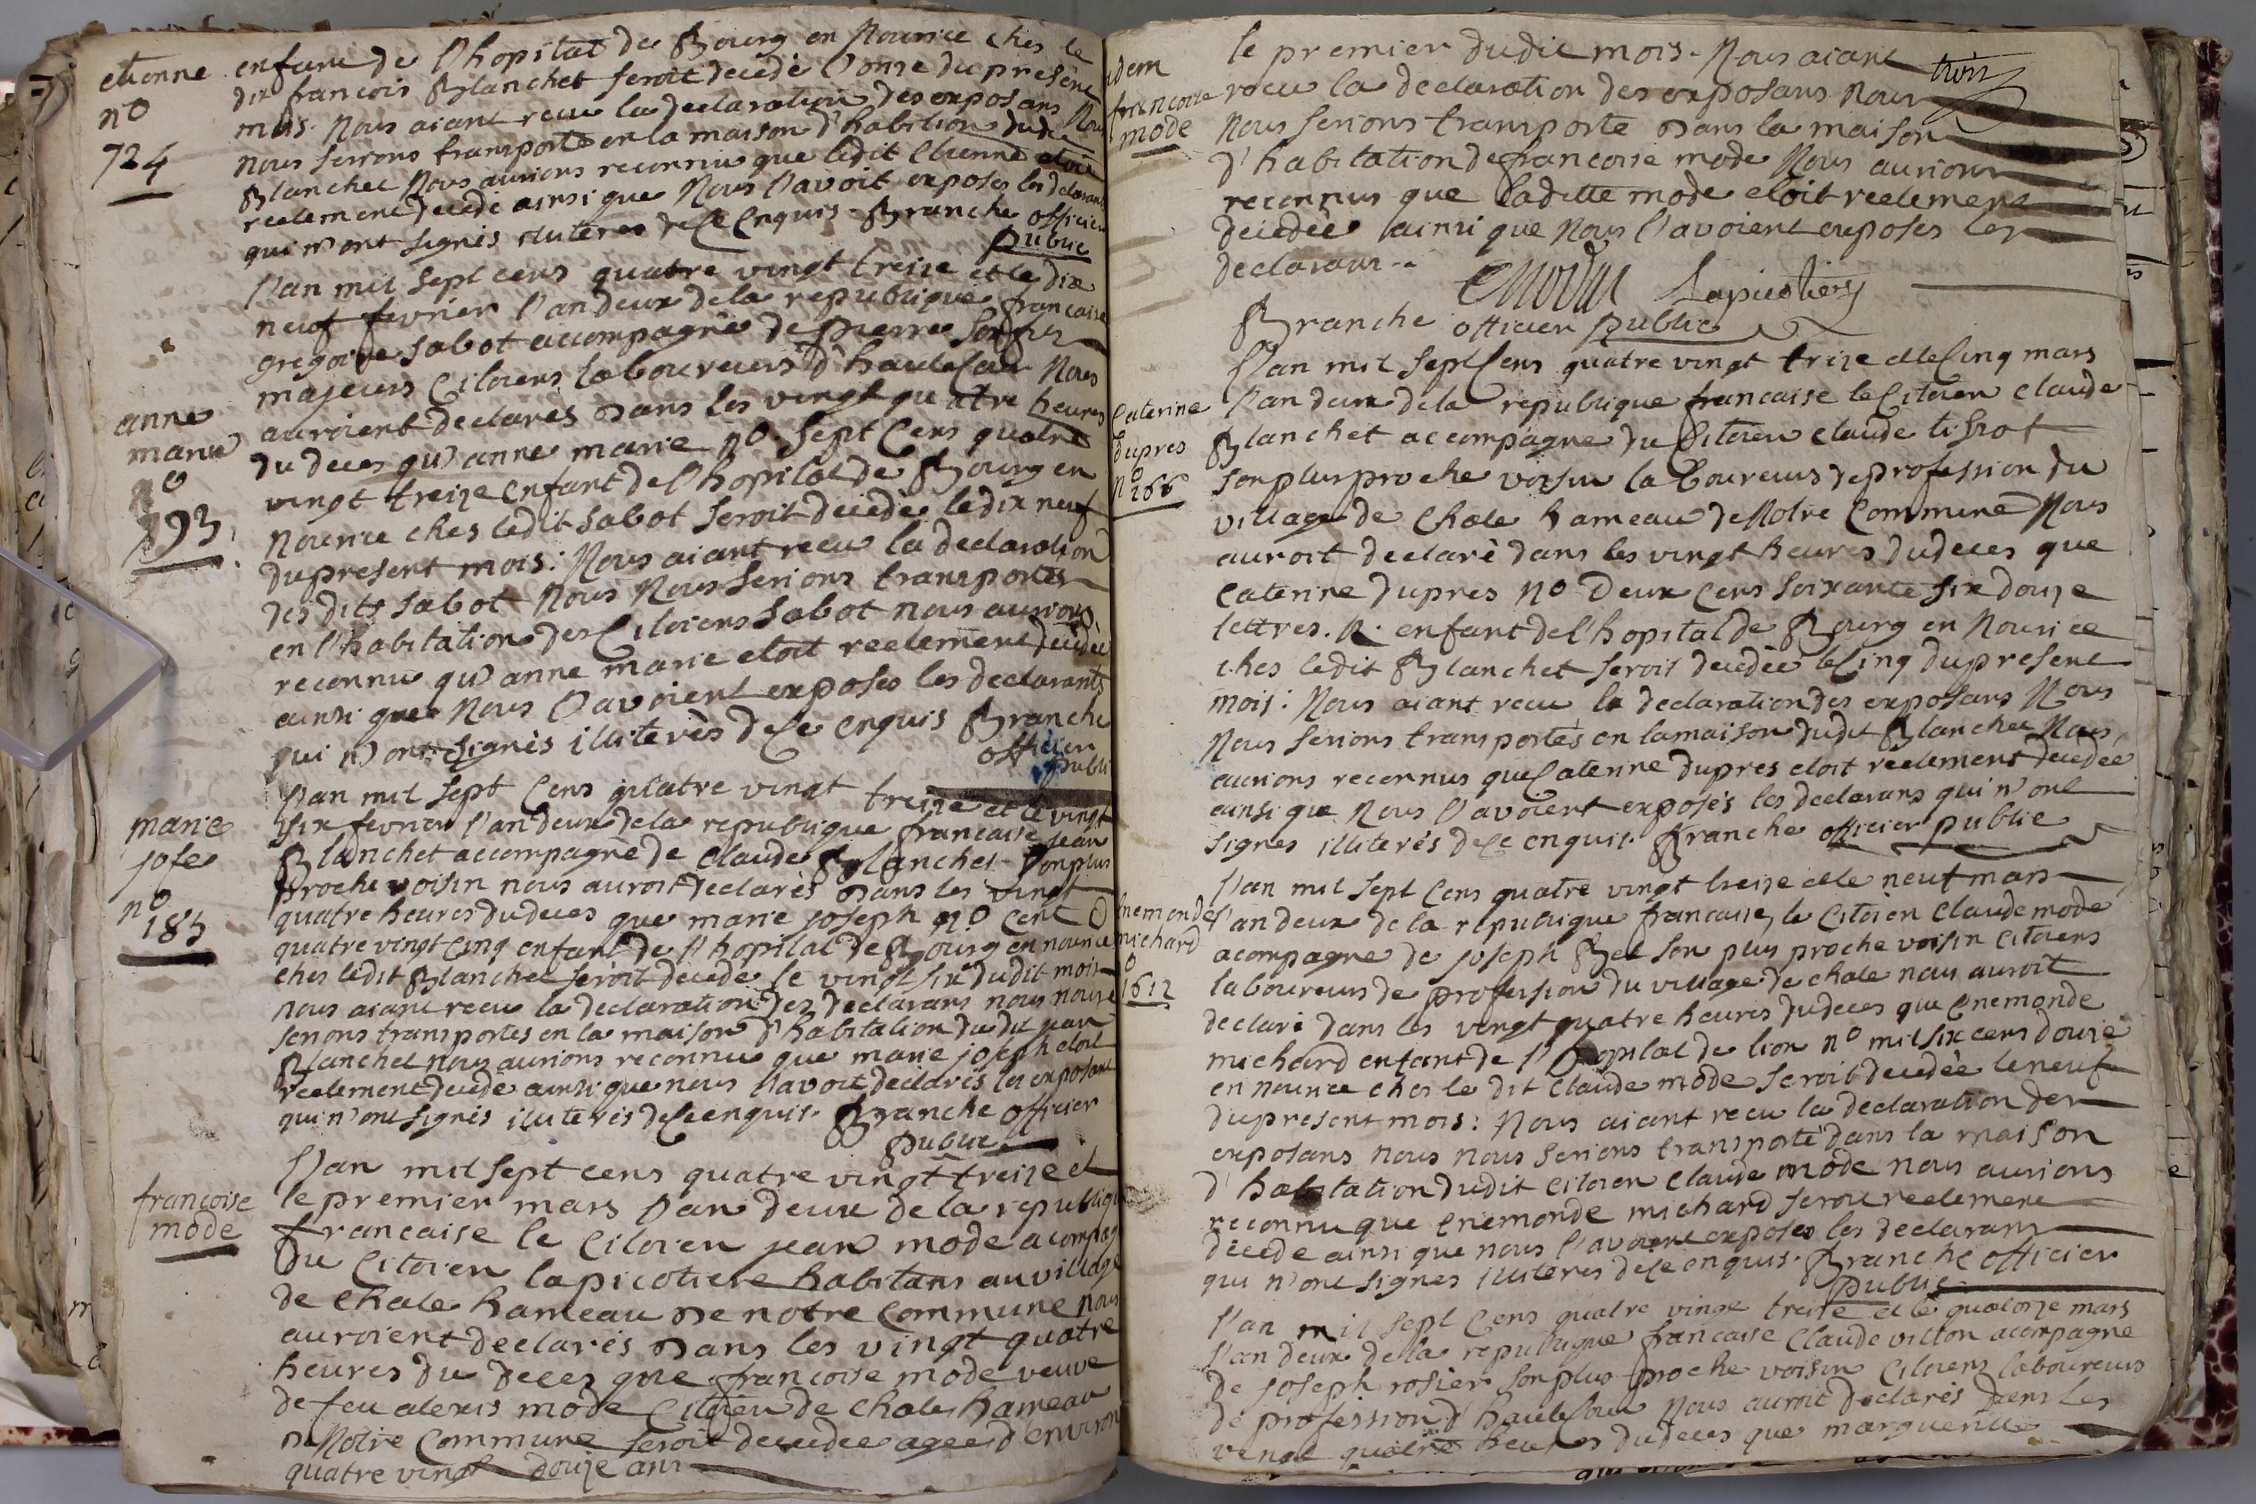 etienne
no
724
enfant de l'hopital de Bourg en Nourice ches le
dit francois Blanchet seroit decedè l'onze du present
mois. Nous aiant recu la declaration des exposans Nous
nous serions transportés en la maison d'habition dudit
Blanchet Nous aurions reconnu que ledit Etienne etoit
reelement decedé ainsi que Nous l'avoit exposes les declarans
qui n'ont signés illiteres de ce enquis. Branche officier
public
anne
marie
no
793
l'an mil sept cens quatre vingt treize et le dix
neuf fevrier l'an deux de la republique francaise
gregoire sabot accompagnè de pierre
majeurs Citoiens laboureurs d'hautesour Nous
auroient declarés dans les vingt quatre heures
du deces qu'anne marie no. sept Cens quatre
vingt treize enfant de l'hopital de Bourg en
nourrice ches ledit sabot seroit decedè le dix neuf
du present mois: Nous aiant recu la declaration
des dits sabot Nous Nous serions transportés
en l'habitation des Citoiens sabot nous aurions
reconnu qu'anne marie etoit reelement decedée
ainsi que Nous l'avoient exposes les declarants
qui n'ont signès illiterès de ce enquis Branche
officier
public
marie
jose
no
185
l'an mil sept Cens quatre vingt treize et le vingt
six fevrier l'an deux de la republique francaise jean
Blanchet accompagnè de Claude Blanchet son plus
proche voisin nous auroit declarès dans les vingt
quatre heures du deces que marie joseph no. cent
quatre vingt cinq enfant de l'hopital de Bourg en nourice
ches ledit Blanchet seroit decede le vingt six dudit mois
nous aiant recu la declaration des declarans nous nous
serions transportes en la maison d'habitation du dit jean
Blanchet nous aurions reconnu que marie joseph etoit
reelement decedè ainsi que nous l'avoit declarés les exposant
qui n'ont signés illiterés de ce enquis. Branche officier
public
francoise
mode
l'an mil sept cens quatre vingt treize et
le premier mars l'an deux de la republique
francaise le Citoien jean mode acompag
du Citoien lapicotiere habitans au village
de Chale hameau de notre commune nous
auroient declarés dans les vingt quatre
heures du deces que francoise mode veuve
de feu alexis mode Citoien de Chale hameau
Notre Commune seroit decedee agee d'environ
quatre vingt douze ans
idem
francoise
mode
trois
le premier dudit mois. Nous aiant
recu la declaration des exposans nous
Nous serions transporte dans la maison
d'habitation de francoise mode Nous aurions
reconnus que laditte mode etoit reelement
decedèe ainsi que Nous l'avoient exposes les
declarans..
Lapicotiere
Branche officier public
Caterine
dupres
no
266
l'an mil sept Cens quatre vingt treize et le Cinq mars
l'an deux de la republique francaise le Citoien Claude
Blanchet accompagne du Citoien Claude tissot
son plus proche voisin laboureurs de profession du
village de Chale hameau de Notre Commune Nous
auroit declarè dans les vingt heures du deces que
Caterine dupres no Deux Cens soixante six douze
lettres. R. enfant de l'hopital de Bourg en Nourice
ches ledit Blanchet seroit decedèe le Cinq du present
mois: Nous aiant recu la declaration des exposans Nous
Nous serions transportés en la maison dudit Blanchet Nous
aurions reconnus que Caterine dupres etoit réelement decedée
ainsi que Nous l'avoient exposés les declarans qui n'ont
signes illiterés de ce enquis. Branche officier public
Enemonde
michard
o
1612
l'an mil sept Cens quatre vingt treize et le neuf mars
l'an deux de la republique francaise, le Citoien Claude mode
acompagne de joseph Bel son plus proche voisin Citoiens
laboureurs de profession du village de chale nous auroit
declaré dans les vingt quatre heures du deces que Enemonde
michard enfant de l'hopital de lion no mil six cens douze
en nourice ches le dit Claude mode seroit decedèe le neuf
du present mois: Nous aiant recu la declaration des
exposans nous nous serions transporté dans la maison
d'habitation dudit citoien Claude mode nous aurions
reconnu que Enemonde michard seroit reelement
decede ainsi que nous l'avoient exposes les declarans
qui n'ont signes illiteres de ce enquis. Branche officier
public
l'an mil sept Cens quatre vingt treize et le quatorze mars
l'an deux de la republique francaise Claude villon acompagne
de joseph rosier son plus proche voisin Citoiens laboureurs
de profession d'hautesour Nous auroit declarés dans les
vingt quatre heures du deces que marguerite